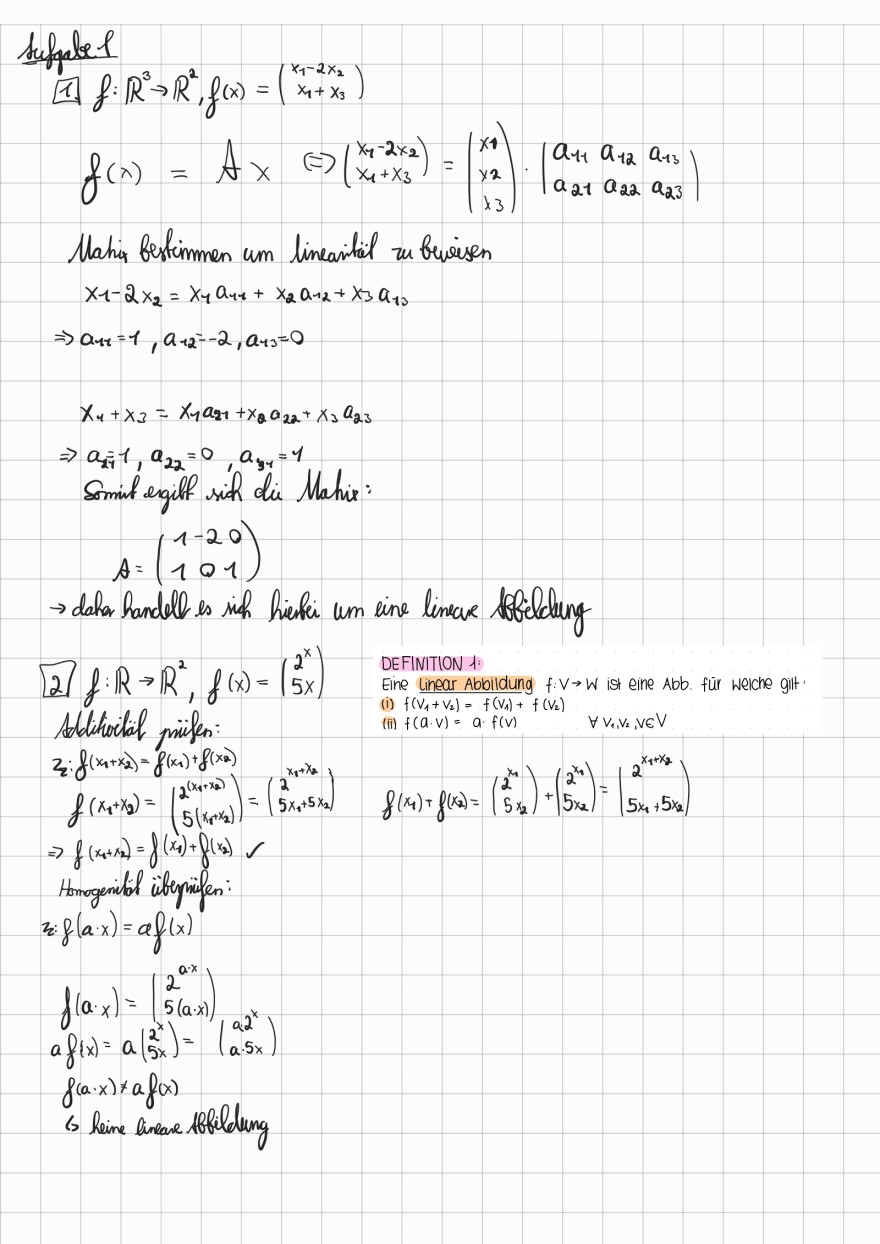 Aufgabe 1
1. f: ℝ³ → ℝ², f(x) = (x₁-2x₂ / x₁+x₃)
f(x) = A x ⇔ (x₁-2x₂ / x₁+x₃) = (x1 / x2 / x3) · (a₁₁ a₁₂ a₁₃ / a₂₁ a₂₂ a₂₃)
Matrix bestimmen um linearität zu beweisen
x₁-2x₂ = x₁a₁₁ + x₂a₁₂ + x₃a₁₃
⇒ a₁₁=1, a₁₂=-2, a₁₃=0
x₁+x₃ = x₁a₂₁ + x₂a₂₂ + x₃a₂₃
⇒ a₂₁=1, a₂₂=0, a₃₁=1
Somit ergibt sich die Matrix:
A = (1 -2 0 / 1 0 1)
→ daher handelt es sich hierbei um eine lineare Abbildung
2 f: ℝ → ℝ², f(x) = (2^x / 5x)
DEFINITION 1:
Eine linear Abbildung f: V→W ist eine Abb. für welche gilt:
(i) f(v₁+v₂) = f(v₁) + f(v₂)
(ii) f(a·v) = a·f(v) ∀ v₁,v₂,v∈V
Additivität prüfen:
Zz: f(x₁+x₂) = f(x₁)+f(x₂)
f(x₁+x₂) = (2^(x₁+x₂) / 5(x₁+x₂)) = (2^x₁+x₂ / 5x₁+5x₂)
f(x₁)+f(x₂) = (2^x₁ / 5x₂) + (2^x₁ / 5x₂) = (2^x₁+x₂ / 5x₁+5x₂)
⇒ f(x₁+x₂) = f(x₁)+f(x₂) ✓
Homogenität überprüfen:
Zz: f(a·x) = af(x)
f(a·x) = (2^a·x / 5(a·x))
af(x) = a(2^x / 5x) = (a2^x / a·5x)
f(a·x) ≠ af(x)
↳ keine lineare Abbildung